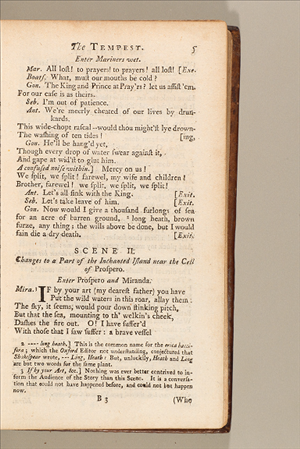 The TEMPEST. 5
Enter Mariners wet.
Mar. All lost! to prayers! to prayers! all lost! [Exe.
Boats. What, must our mouths be cold?
Gon. The King and Prince at Pray'rs! let us assist 'em,
For our case is as theirs.
Seb. I'm out of patience.
Ant. We're meerly cheated of our lives by drun-
kards.
This wide-chopt rascal—would thou might'st lye drown-
The washing of ten tides! [ing,
Gon. He'll be hang'd yet,
Though every drop of water swear against it,
And gape at wid'st to glut him.
A confused noise within.] Mercy on us!
We split, we split! farewel, my wife and children!
Brother, farewel! we split, we split, we split!
Ant. Let's all sink with the King. [Exit.
Seb. Let's take leave of him. [Exit.
Gon. Now would I give a thousand furlongs of sea
for an acre of barren ground, 2 long heath, brown
furze, any thing; the wills above be done, but I would
fain die a dry death. [Exit.
SCENE II.
Changes to a Part of the Inchanted Island near the Cell
of Prospero.
Enter Prospero and Miranda.
Mira. 3 IF by your art (my dearest father) you have
Put the wild waters in this roar, allay them:
The sky, it seems, would pour down stinking pitch,
But that the sea, mounting to th' welkin's cheek,
Dashes the fire out. O! I have suffer'd
With those that I saw suffer: a brave vessel
2 —— long heath,] This is the common name for the erica baccifera; which the Oxford Editor not understanding, conjectured that
Shakespear wrote, —— Ling, Heath: But, unluckily, Heath and Ling
are but two words for the same plant.
3 If by your Art, &c.] Nothing was ever better contrived to in-
form the Audience of the Story than this Scene. It is a conversa-
tion that could not have happened before, and could not but happen
now.
B 3 (Who